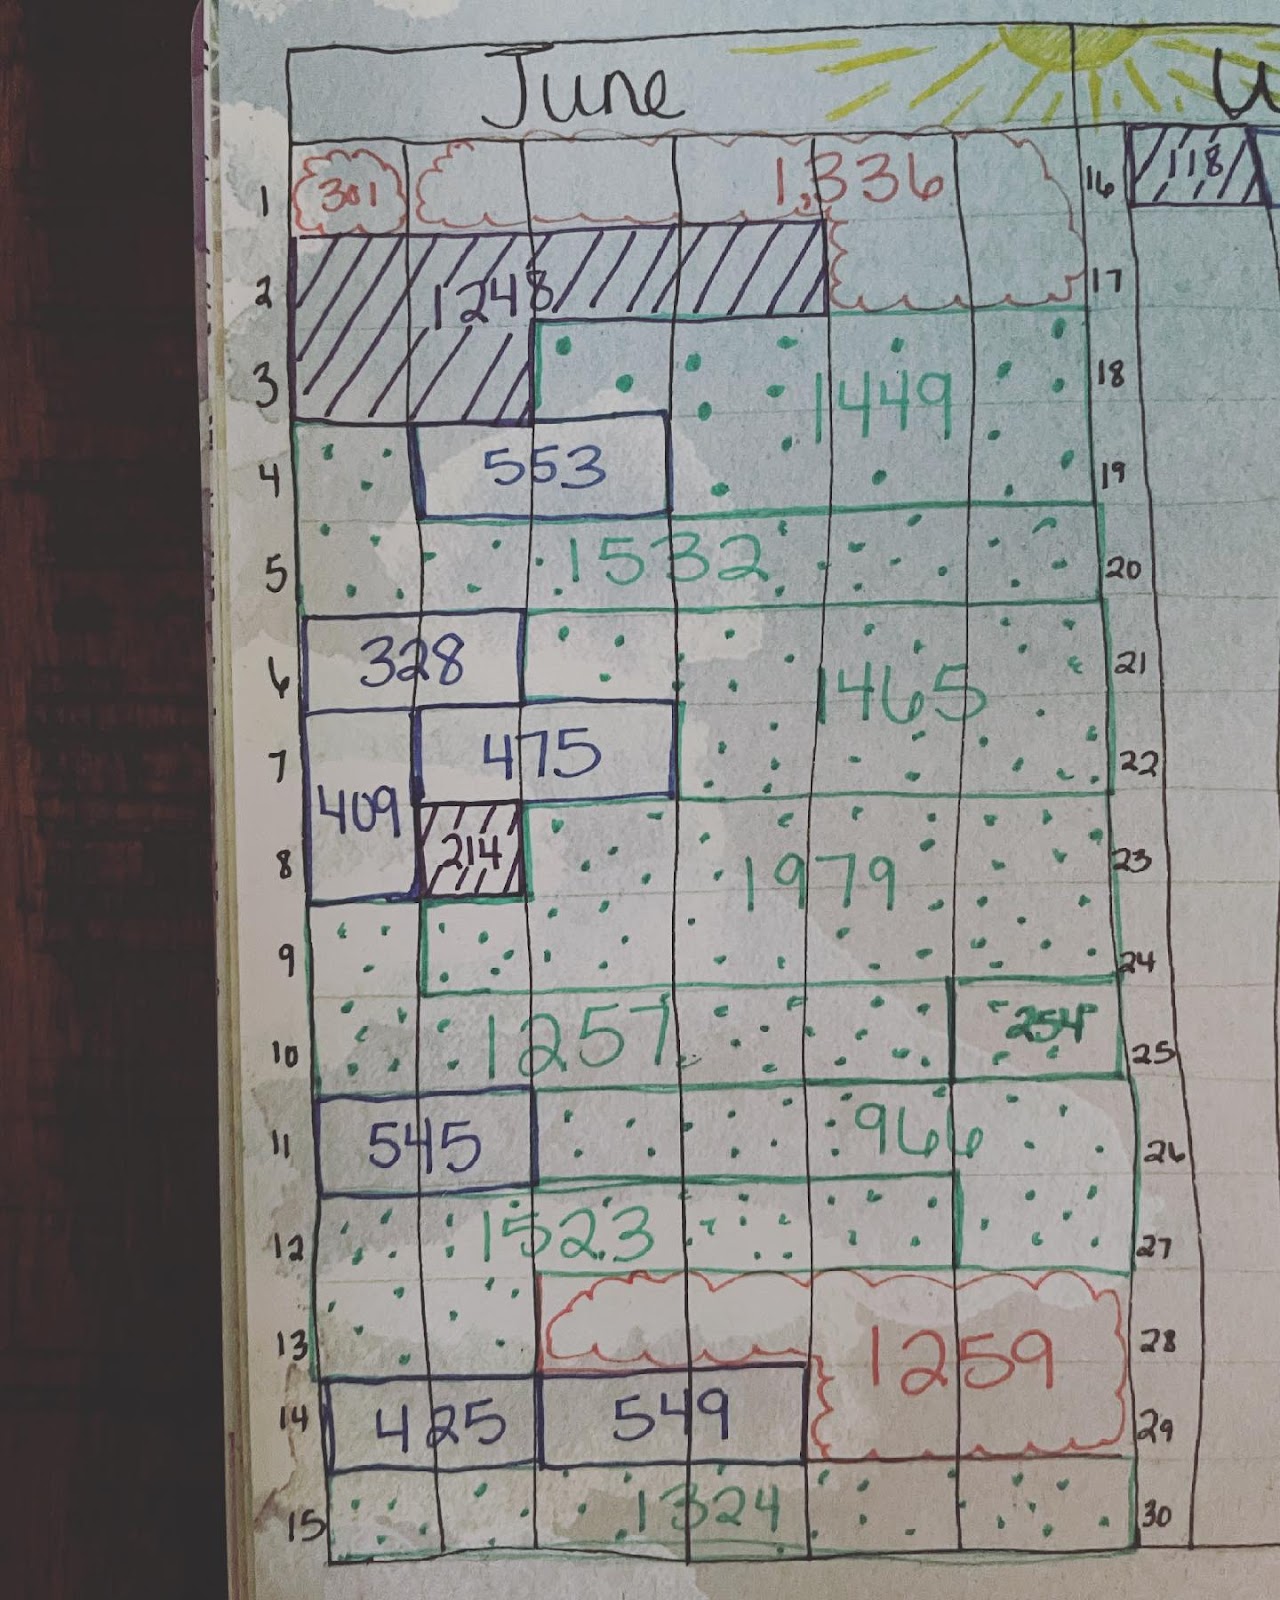 June
1 301 1,336 16 118
2 1248 17
3 1449 18
4 553 19
5 1532 20
6 328 1465 21
7 475 22
409
8 214 1979 23
9 24
10 1257 254 25
11 545 966 26
12 1523 27
13 1259 28
14 425 549 29
15 1324 30